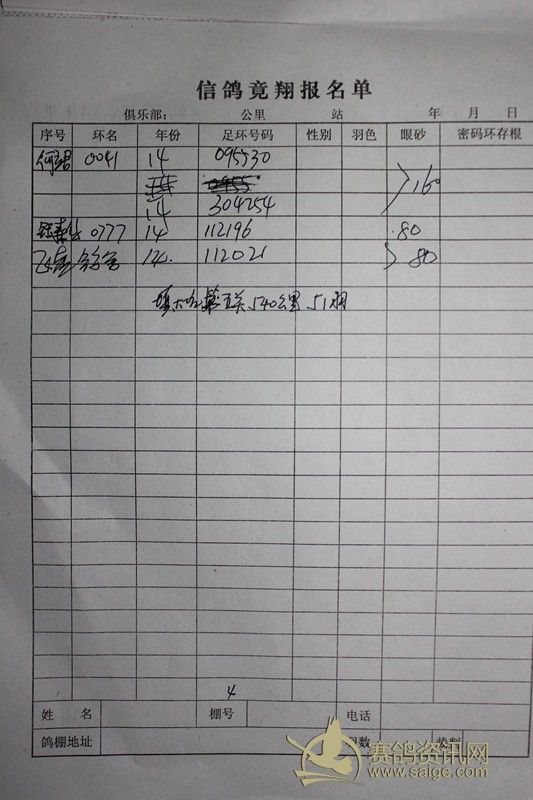 信鸽竞翔报名单
俱乐部： 公里 站 年 月 日
序号 环名 年份 足环号码 性别 羽色 眼砂 密码环存根
0041 14 095530
14 0955
14 304254 160
0777 14 112196 80
14. 112021 80
540公里 51
4
姓 名 棚号 电话
鸽棚地址
赛鸽资讯网
www.saige.com